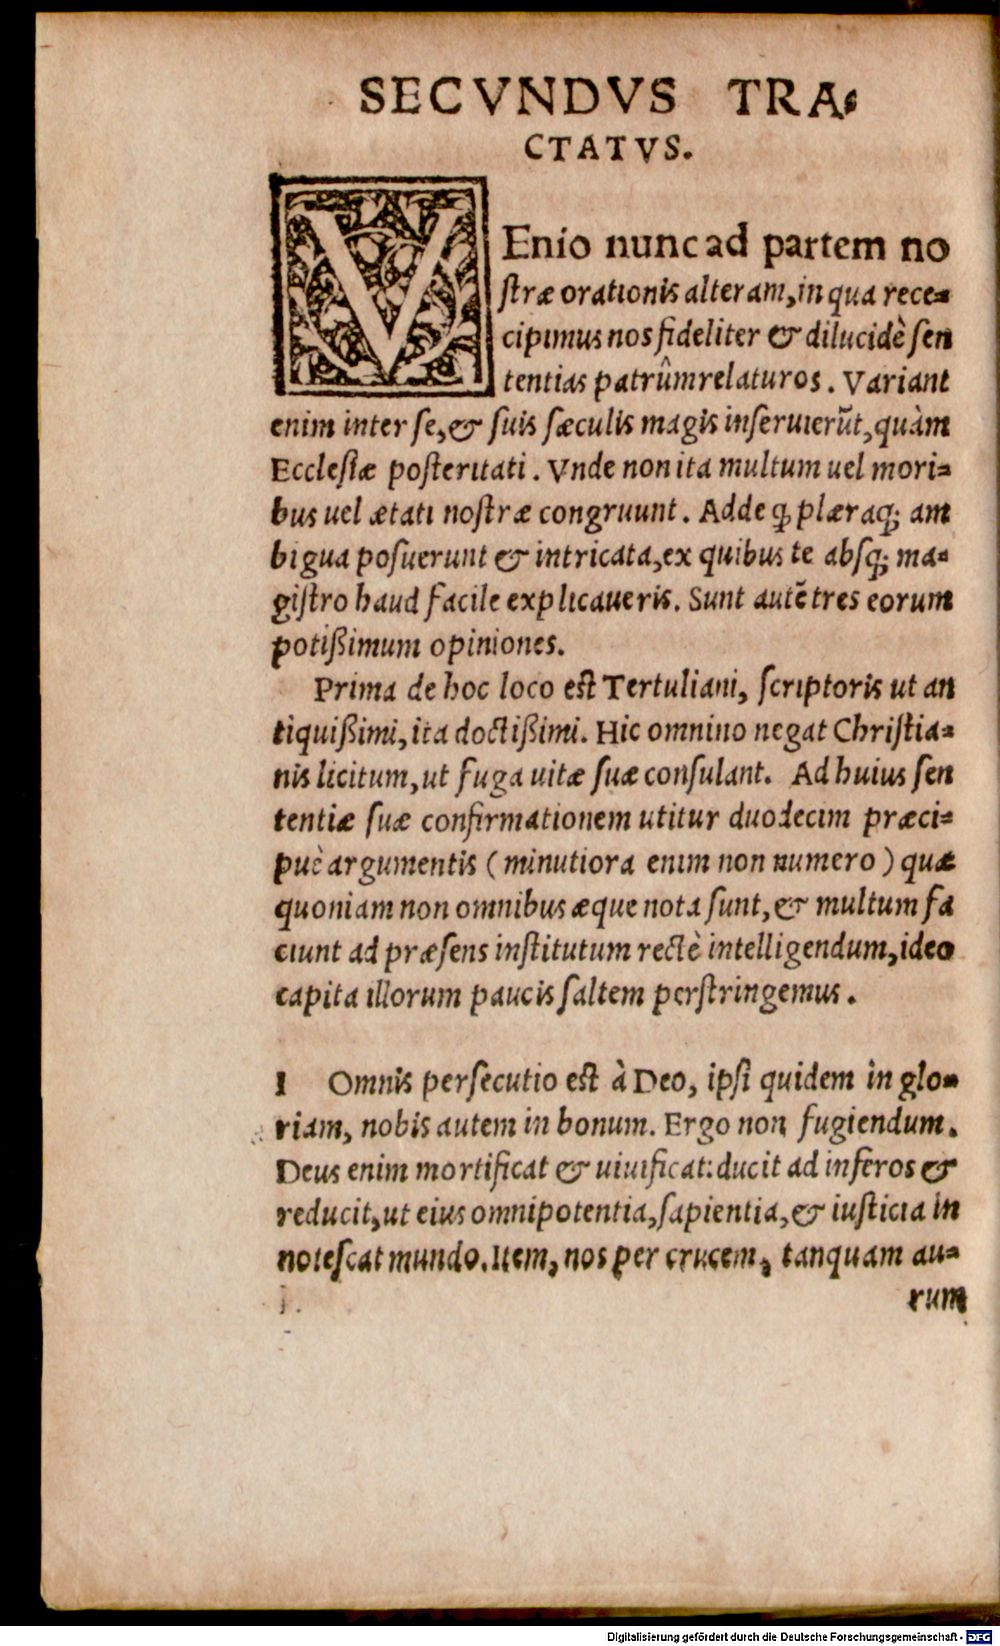 SECVNDVS TRA-
CTATVS.
VEnio nunc ad partem no
stræ orationis alteram, in qua rece-
cipimus nos fideliter & dilucidè sen
tentias patrûm relaturos. Variant
enim inter se, & suis sæculis magis inseruierũt, quàm
Ecclesiæ posteritati. Vnde non ita multum uel mori-
bus uel ætati nostræ congruunt. Adde ꝙ plæraq; am
bigua posuerunt & intricata, ex quibus te absq; ma-
gistro haud facile explicaueris. Sunt autẽ tres eorum
potißimum opiniones.
Prima de hoc loco est Tertuliani, scriptoris ut an
tiquißimi, ita doctißimi. Hic omnino negat Christia-
nis licitum, ut fuga uitæ suæ consulant. Ad huius sen
tentiæ suæ confirmationem utitur duodecim præci-
puè argumentis (minutiora enim non numero) quæ
quoniam non omnibus æque nota sunt, & multum fa
ciunt ad præsens institutum rectè intelligendum, ideo
capita illorum paucis saltem perstringemus.
I Omnis persecutio est à Deo, ipsi quidem in glo-
riam, nobis autem in bonum. Ergo non fugiendum.
Deus enim mortificat & uiuificat: ducit ad inferos &
reducit, ut eius omnipotentia, sapientia, & iusticia in
notescat mundo. Item, nos per crucem, tanquam au-
rum
Digitalisierung gefördert durch die Deutsche Forschungsgemeinschaft - DFG